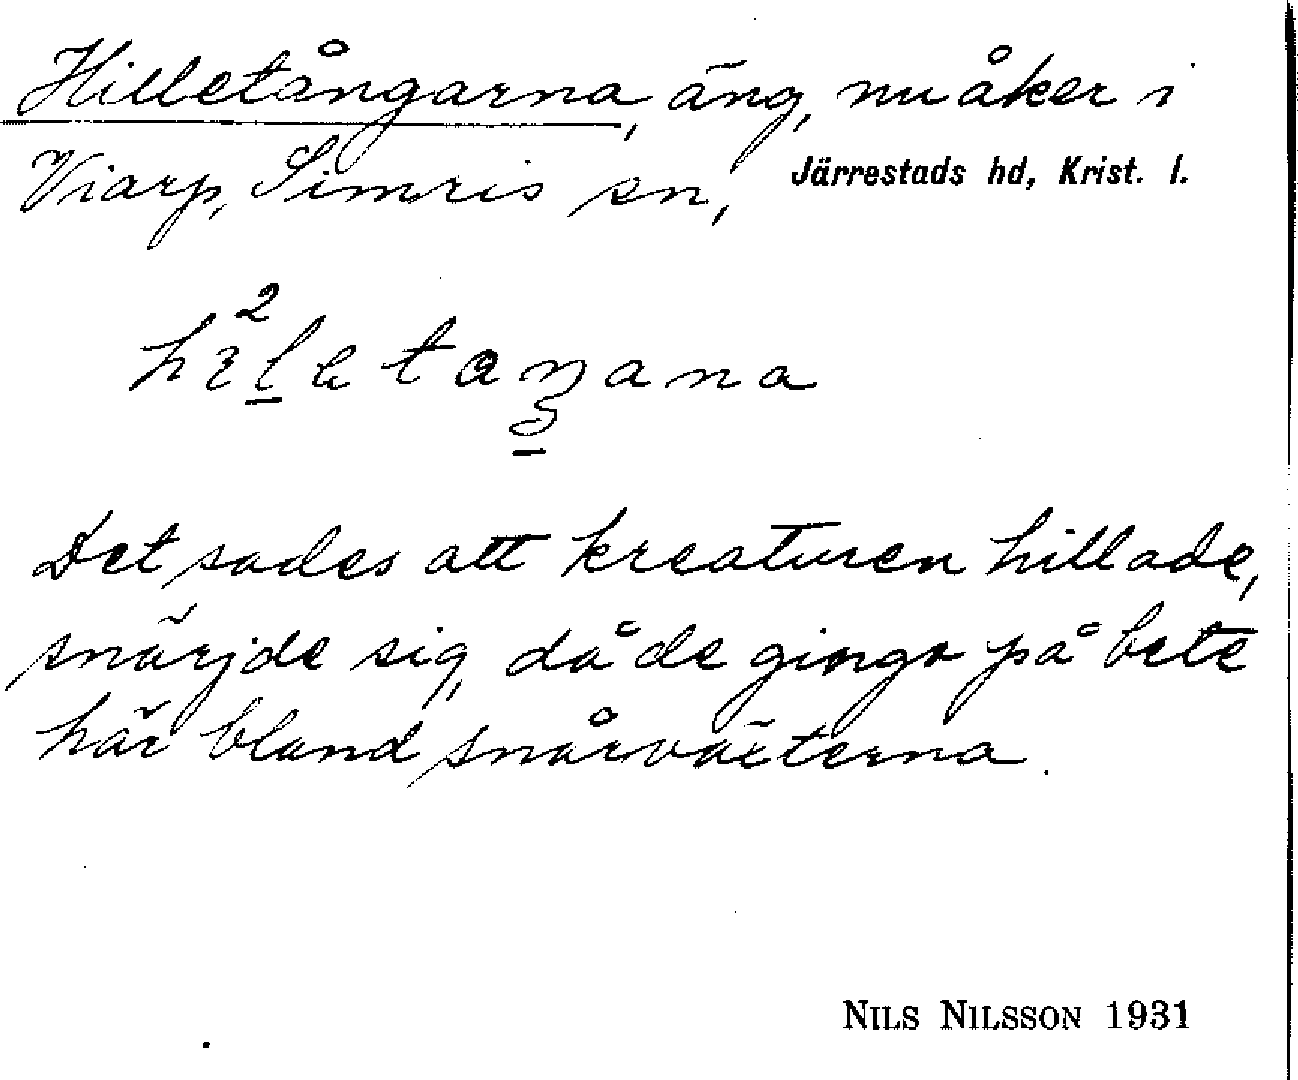 Hilletångarna, äng, nu åker i
Viarp, Simris sn, Järrestads hd, Krist. l.
Det sades att kreaturen hillade,
snärjde sig, då de gingo på bete
här bland snårväxterna.
NILS NILSSON 1931